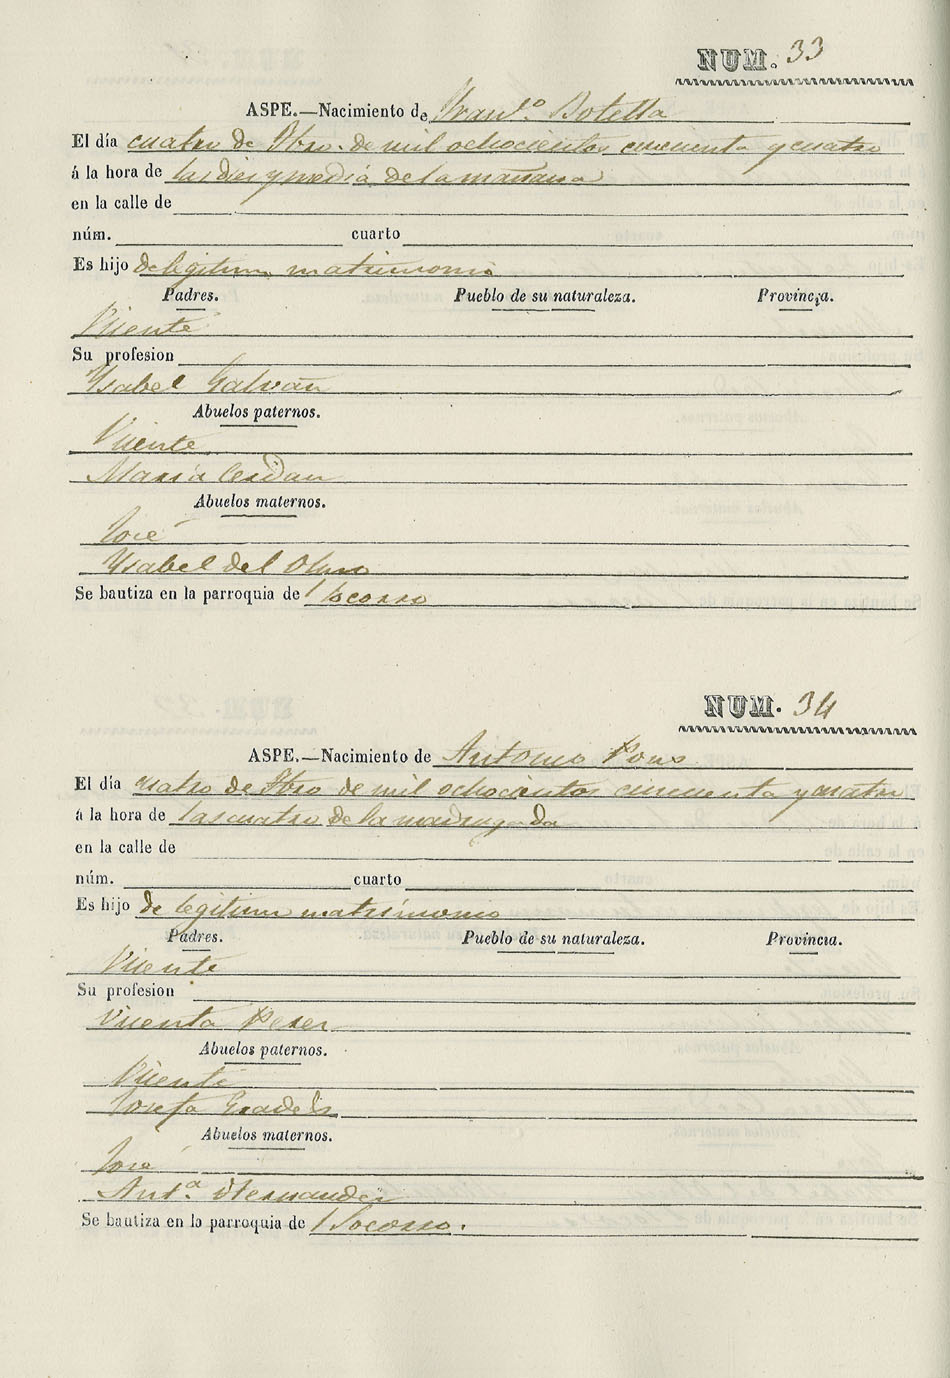 NUM. 33
ASPE.—Nacimiento de Franco. Botella
El día cuatro de Fbro. de mil ochocientos cincuenta y cuatro
á la hora de las dies y media de la mañana
en la calle de
núm. cuarto
Es hijo de legitimo matrimonio
Padres. Pueblo de su naturaleza. Provincia.
Vicente
Su profesion
Ysabel Galvañ
Abuelos paternos.
Vicente
Maria Cerdan
Abuelos maternos.
José
Ysabel del Olmo
Se bautiza en la parroquia de Socorro
NUM. 34
ASPE.—Nacimiento de Antonio Pons
El día cuatro de Fbro de mil ochocientos cincuenta y cuatro
á la hora de las cuatro de la madrugada
en la calle de
núm. cuarto
Es hijo de legitimo matrimonio
Padres. Pueblo de su naturaleza. Provincia.
Vicente
Su profesion
Vicenta Perez
Abuelos paternos.
Vicente
Josefa
Abuelos maternos.
José
Anta. Hernandez
Se bautiza en la parroquia de Socorro.